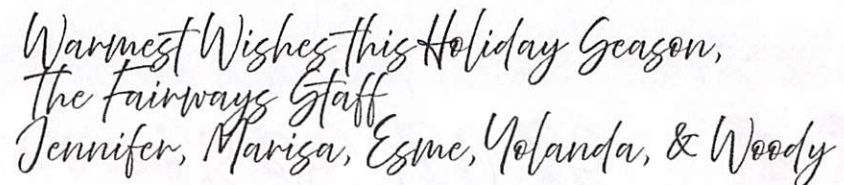 Warmest Wishes this Holiday Season,
The Fairways Staff
Jennifer, Marisa, Esme, Yolanda, & Woody